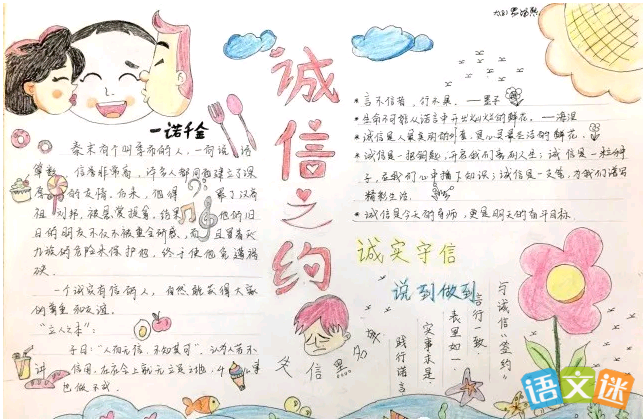 诚信之约
一诺千金
秦末有个叫季布的人，一向说话
算数，信誉非常高，许多人都同他建立了深
厚的友情。后来，他得罪了汉高
祖刘邦，被悬赏捉拿。结果他的旧
日的朋友不仅不被重金所惑，而且冒着灭
九族的危险来保护他，终于使他免遭祸
殃。
一个诚实有信的人，自然能获得大家
的尊重和友谊。
"立人之本"：
子曰："人而无信，不知其可"。认为人若不
讲信用，在社会上就无立足之地，什么事
也做不成。
*言不信者，行不果。——墨子
*生命不可能从谎言中开出灿烂的鲜花。——海涅
*诚信是人最美丽的外套，是心灵最圣洁的鲜花。
*诚信是一把钥匙，开启我们美丽人生；诚信是一粒种
子，在我们心中播下知识；诚信是一支笔，为我们谱写
精彩生活。
*诚信是今天的导师，更是明天的奋斗目标。
诚实守信
说到做到
与诚信"签约"
言行一致
表里如一
实事求是
践行诺言
失信黑名
语文迷